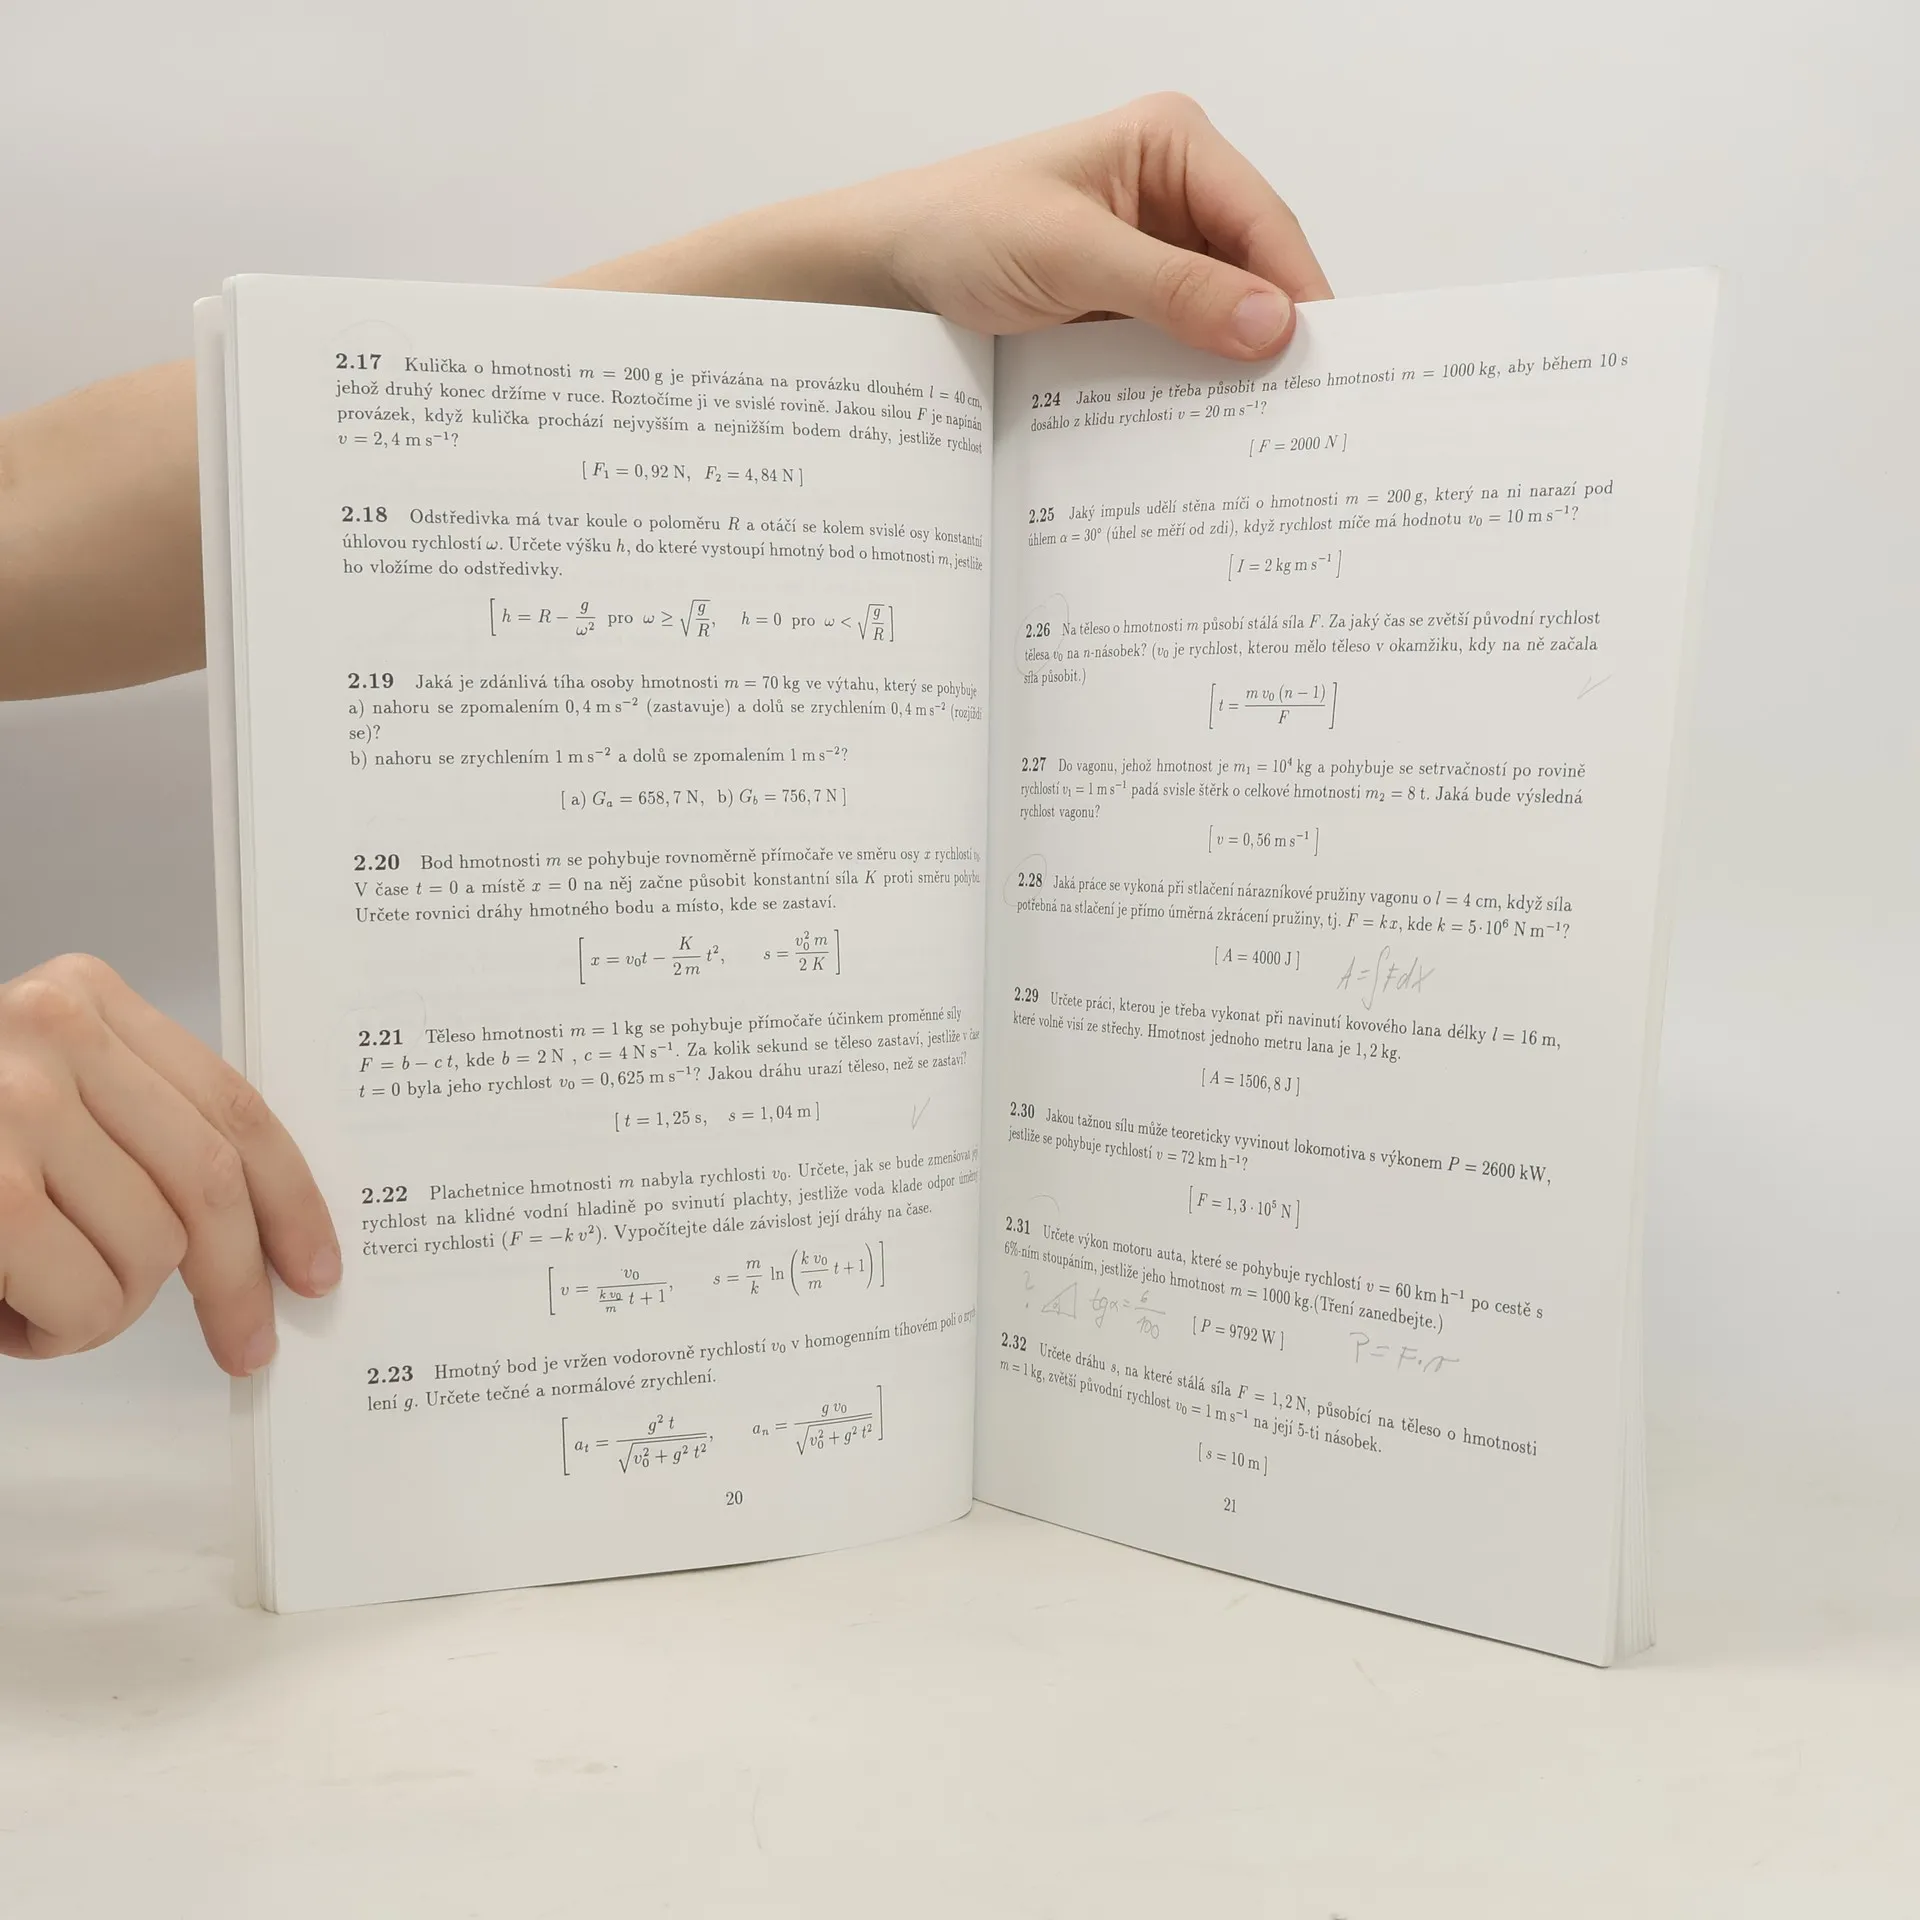 2.17 Kulička o hmotnosti m = 200 g je přivázána na provázku dlouhém l = 40 cm,
jehož druhý konec držíme v ruce. Roztočíme ji ve svislé rovině. Jakou silou F je napínán
provázek, když kulička prochází nejvyšším a nejnižším bodem dráhy, jestliže rychlost
v = 2,4 m s⁻¹?
[ F₁ = 0,92 N, F₂ = 4,84 N ]
2.18 Odstředivka má tvar koule o poloměru R a otáčí se kolem svislé osy konstantní
úhlovou rychlostí ω. Určete výšku h, do které vystoupí hmotný bod o hmotnosti m, jestliže
ho vložíme do odstředivky.
[ h = R − g/ω² pro ω ≥ √(g/R), h = 0 pro ω < √(g/R) ]
2.19 Jaká je zdánlivá tíha osoby hmotnosti m = 70 kg ve výtahu, který se pohybuje
a) nahoru se zpomalením 0,4 m s⁻² (zastavuje) a dolů se zrychlením 0,4 m s⁻² (rozjíždí
se)?
b) nahoru se zrychlením 1 m s⁻² a dolů se zpomalením 1 m s⁻²?
[ a) Gₐ = 658,7 N, b) G_b = 756,7 N ]
2.20 Bod hmotnosti m se pohybuje rovnoměrně přímočaře ve směru osy x rychlostí v₀.
V čase t = 0 a místě x = 0 na něj začne působit konstantní síla K proti směru pohybu.
Určete rovnici dráhy hmotného bodu a místo, kde se zastaví.
[ x = v₀t − K/(2 m) t², s = v₀² m/(2 K) ]
2.21 Těleso hmotnosti m = 1 kg se pohybuje přímočaře účinkem proměnné síly
F = b − c t, kde b = 2 N , c = 4 N s⁻¹. Za kolik sekund se těleso zastaví, jestliže v čase
t = 0 byla jeho rychlost v₀ = 0,625 m s⁻¹? Jakou dráhu urazí těleso, než se zastaví?
[ t = 1,25 s, s = 1,04 m ]
2.22 Plachetnice hmotnosti m nabyla rychlosti v₀. Určete, jak se bude zmenšovat
rychlost na klidné vodní hladině po svinutí plachty, jestliže voda klade odpor úměrný
čtverci rychlosti (F = −k v²). Vypočítejte dále závislost její dráhy na čase.
[ v = v₀/((k v₀/m) t + 1), s = m/k ln (k v₀/m t + 1) ]
2.23 Hmotný bod je vržen vodorovně rychlostí v₀ v homogenním tíhovém poli o zrych
lení g. Určete tečné a normálové zrychlení.
[ aₜ = g² t/√(v₀² + g² t²), aₙ = g v₀/√(v₀² + g² t²) ]
20
2.24 Jakou silou je třeba působit na těleso hmotnosti m = 1000 kg, aby během 10 s
dosáhlo z klidu rychlosti v = 20 m s⁻¹?
[ F = 2000 N ]
2.25 Jaký impuls udělí stěna míči o hmotnosti m = 200 g, který na ni narazí pod
úhlem α = 30° (úhel se měří od zdi), když rychlost míče má hodnotu v₀ = 10 m s⁻¹?
[ I = 2 kg m s⁻¹ ]
2.26 Na těleso o hmotnosti m působí stálá síla F. Za jaký čas se zvětší původní rychlost
tělesa v₀ na n-násobek? (v₀ je rychlost, kterou mělo těleso v okamžiku, kdy na ně začala
síla působit.)
[ t = m v₀ (n − 1)/F ]
2.27 Do vagonu, jehož hmotnost je m₁ = 10⁴ kg a pohybuje se setrvačností po rovině
rychlostí v₁ = 1 m s⁻¹ padá svisle štěrk o celkové hmotnosti m₂ = 8 t. Jaká bude výsledná
rychlost vagonu?
[ v = 0,56 m s⁻¹ ]
2.28 Jaká práce se vykoná při stlačení nárazníkové pružiny vagonu o l = 4 cm, když síla
potřebná na stlačení je přímo úměrná zkrácení pružiny, tj. F = k x, kde k = 5·10⁶ N m⁻¹?
[ A = 4000 J ] A = ∫F dx
2.29 Určete práci, kterou je třeba vykonat při navinutí kovového lana délky l = 16 m,
které volně visí ze střechy. Hmotnost jednoho metru lana je 1,2 kg.
[ A = 1506,8 J ]
2.30 Jakou tažnou sílu může teoreticky vyvinout lokomotiva s výkonem P = 2600 kW,
jestliže se pohybuje rychlostí v = 72 km h⁻¹?
[ F = 1,3 · 10⁵ N ]
2.31 Určete výkon motoru auta, které se pohybuje rychlostí v = 60 km h⁻¹ po cestě s
6%-ním stoupáním, jestliže jeho hmotnost m = 1000 kg.(Tření zanedbejte.)
? tgα = 6/100 [ P = 9792 W ] P = F.v
2.32 Určete dráhu s, na které stálá síla F = 1,2 N, působící na těleso o hmotnosti
m = 1 kg, zvětší původní rychlost v₀ = 1 m s⁻¹ na její 5-ti násobek.
[ s = 10 m ]
21